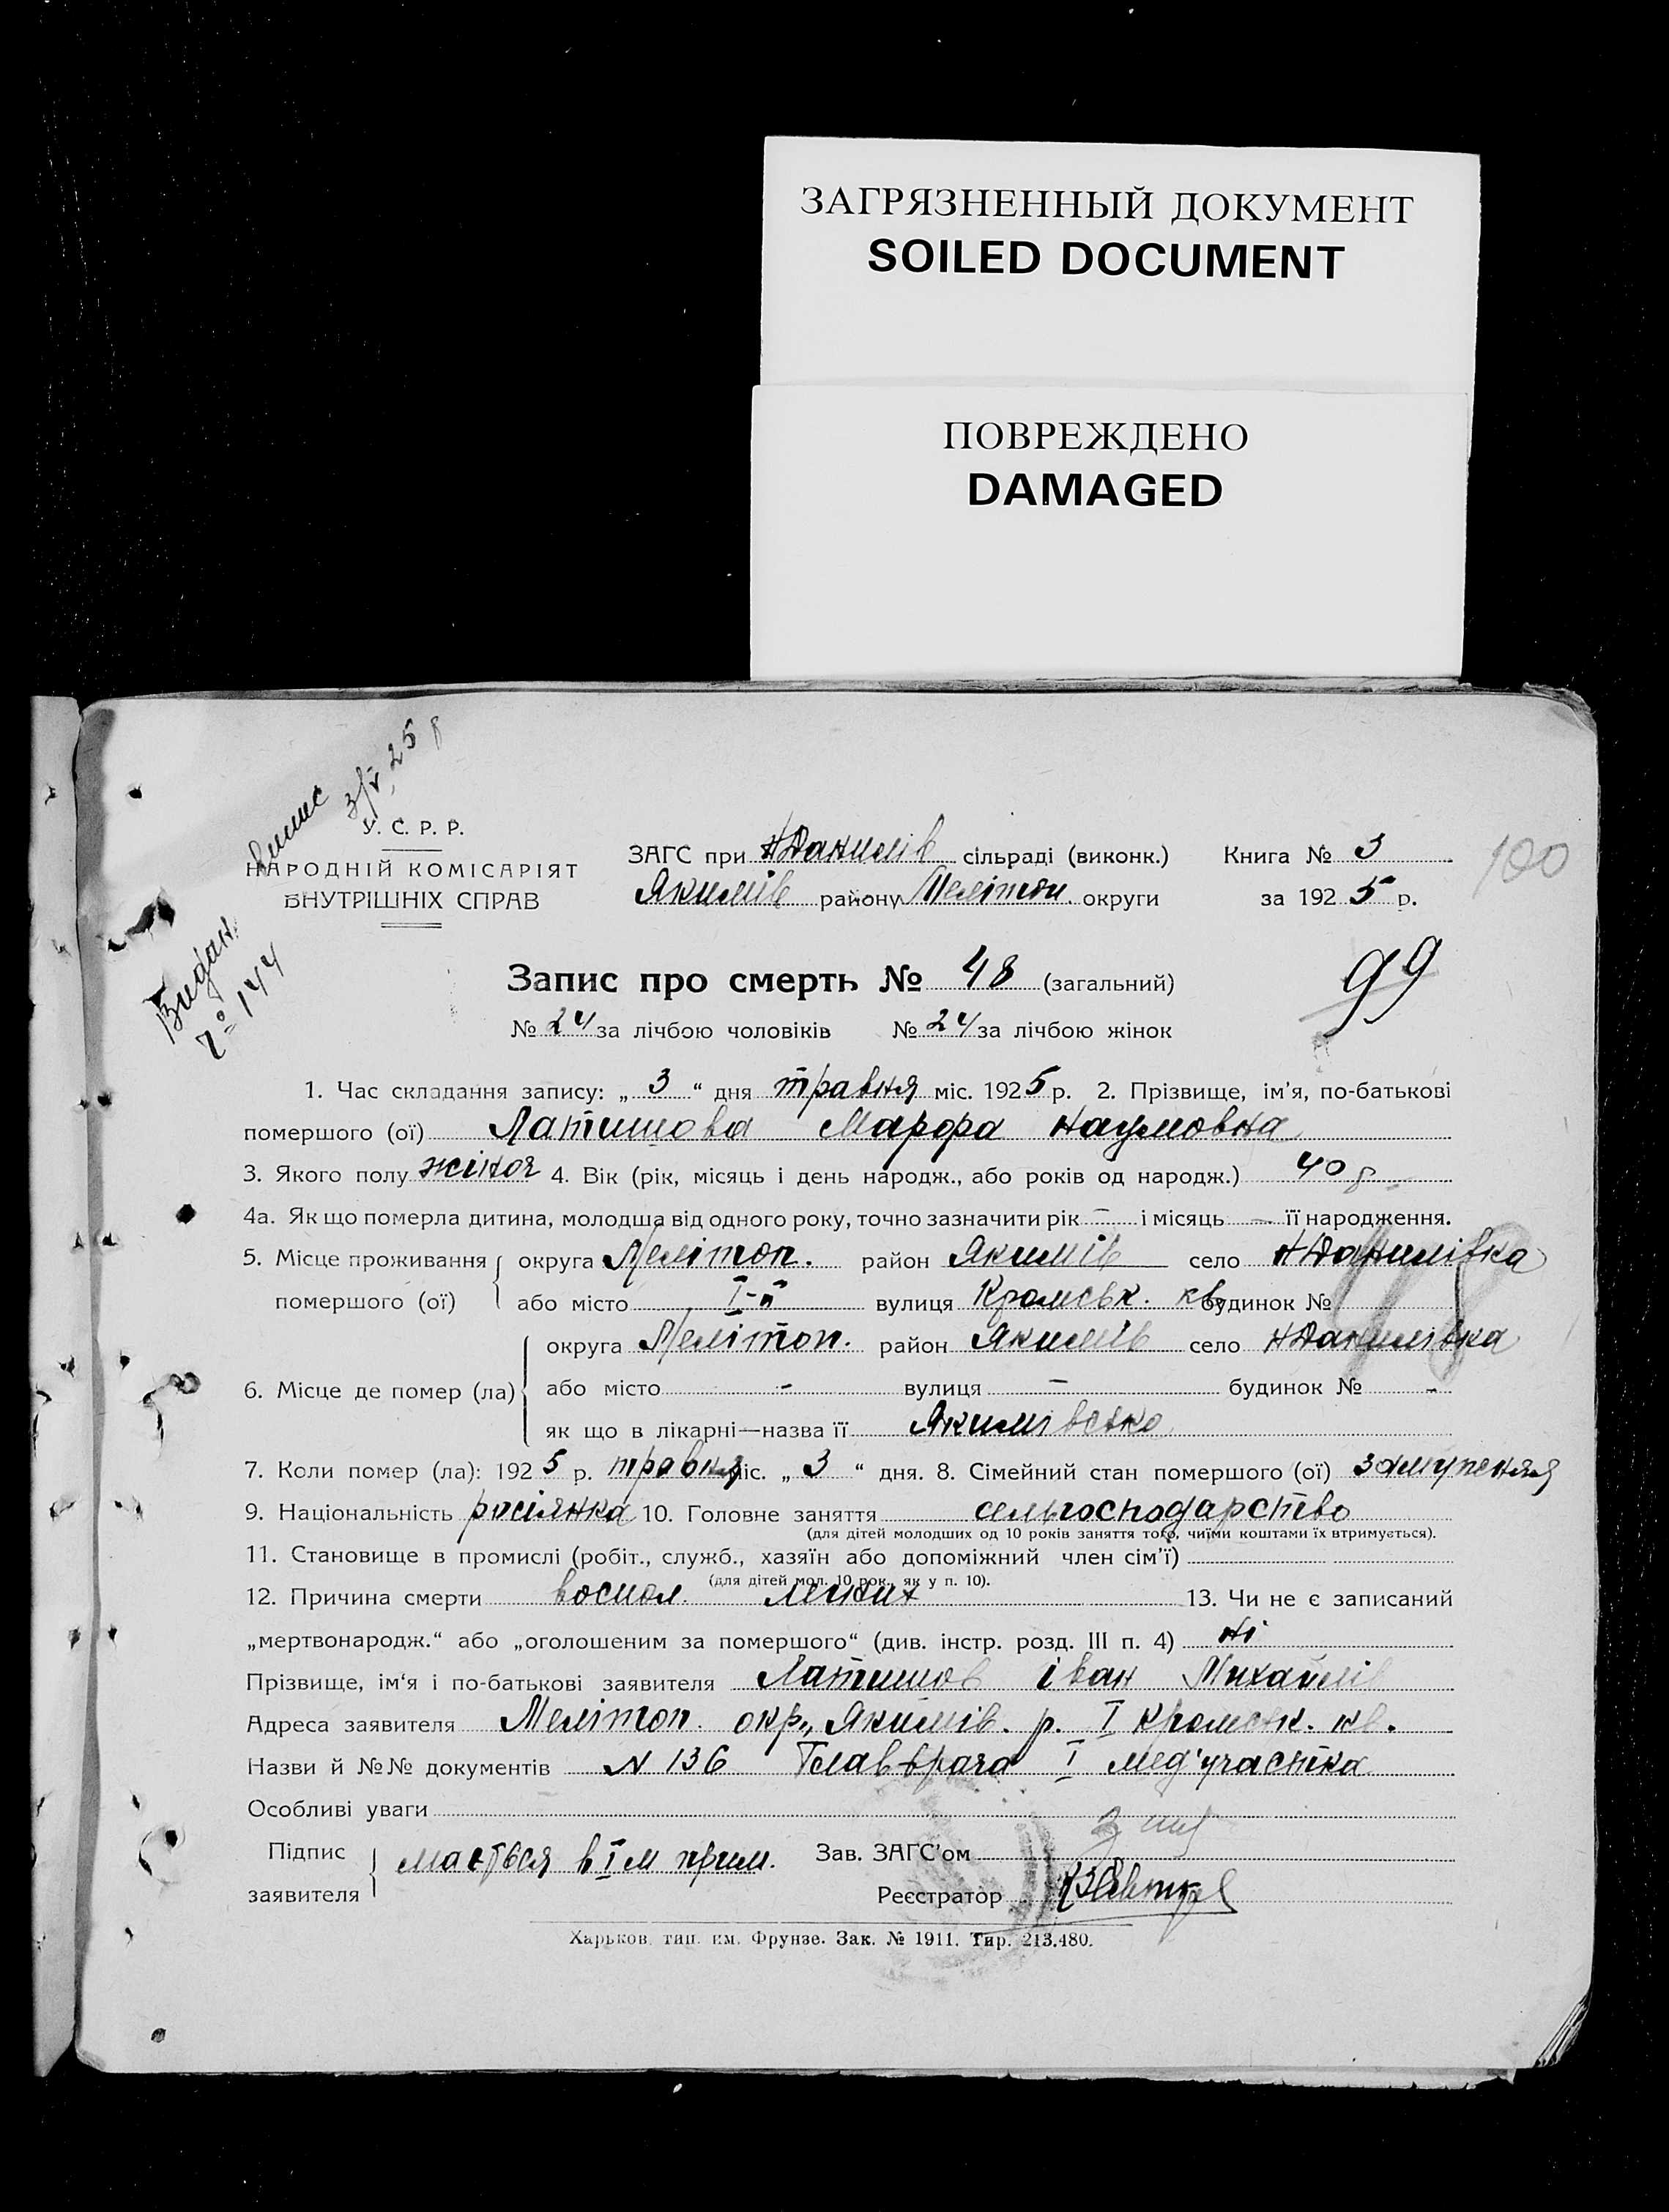 ЗАГРЯЗНЕННЫЙ ДОКУМЕНТ
SOILED DOCUMENT
ПОВРЕЖДЕНО
DAMAGED
випис 3/V 25 р
Видан
№ 144
У. С. Р. Р.
НАРОДНІЙ КОМІСАРІЯТ
ВНУТРІШНІХ СПРАВ
ЗАГС при НДанилів сільраді (виконк.) Книга № 3
Якимів району Мелітоп. округи за 1925 р.
100
99
Запис про смерть № 48 (загальний)
№ 24 за лічбою чоловіків № 24 за лічбою жінок
1. Час складання запису: „ 3 “ дня травня міс. 1925 р. 2. Прізвище, ім'я, по-батькові
помершого (ої) Латишова Марфа Наумовна
3. Якого полу жіноч 4. Вік (рік, місяць і день народж., або років од народж.) 40 р
4а. Як що померла дитина, молодша від одного року, точно зазначити рік – і місяць – її народження.
5. Місце проживання помершого (ої) округа Мелітоп. район Якимів село НДанилівка
або місто I-й вулиця Кромськ. кв. будинок №
6. Місце де помер (ла) округа Мелітоп. район Якимів село НДанилівка
або місто - вулиця – будинок № -
як що в лікарні—назва її Якимівсько
7. Коли помер (ла): 1925 р. травня міс. „ 3 “ дня. 8. Сімейний стан помершого (ої)
9. Національність росіянка 10. Головне заняття сельгосподарство
(для дітей молодших од 10 років заняття того, чиїми коштами їх втримується).
11. Становище в промислі (робіт., служб., хазяїн або допоміжний член сім'ї)
(для дітей мол. 10 рок., як у п. 10).
12. Причина смерти воспал. легких 13. Чи не є записаний
„мертвонародж.“ або „оголошеним за помершого“ (див. інстр. розд. III п. 4) ні
Прізвище, ім'я і по-батькові заявителя Латишов Іван Михайлів
Адреса заявителя Мелітоп. окр., Якимів. р. I Кромськ. кв.
Назви й №№ документів N 136 Главврача I мед'участка
Особливі уваги
Підпис заявителя мається в I м прим. Зав. ЗАГС'ом
Реєстратор
Харьков. тип. им. Фрунзе. Зак. № 1911. Тир. 213.480.